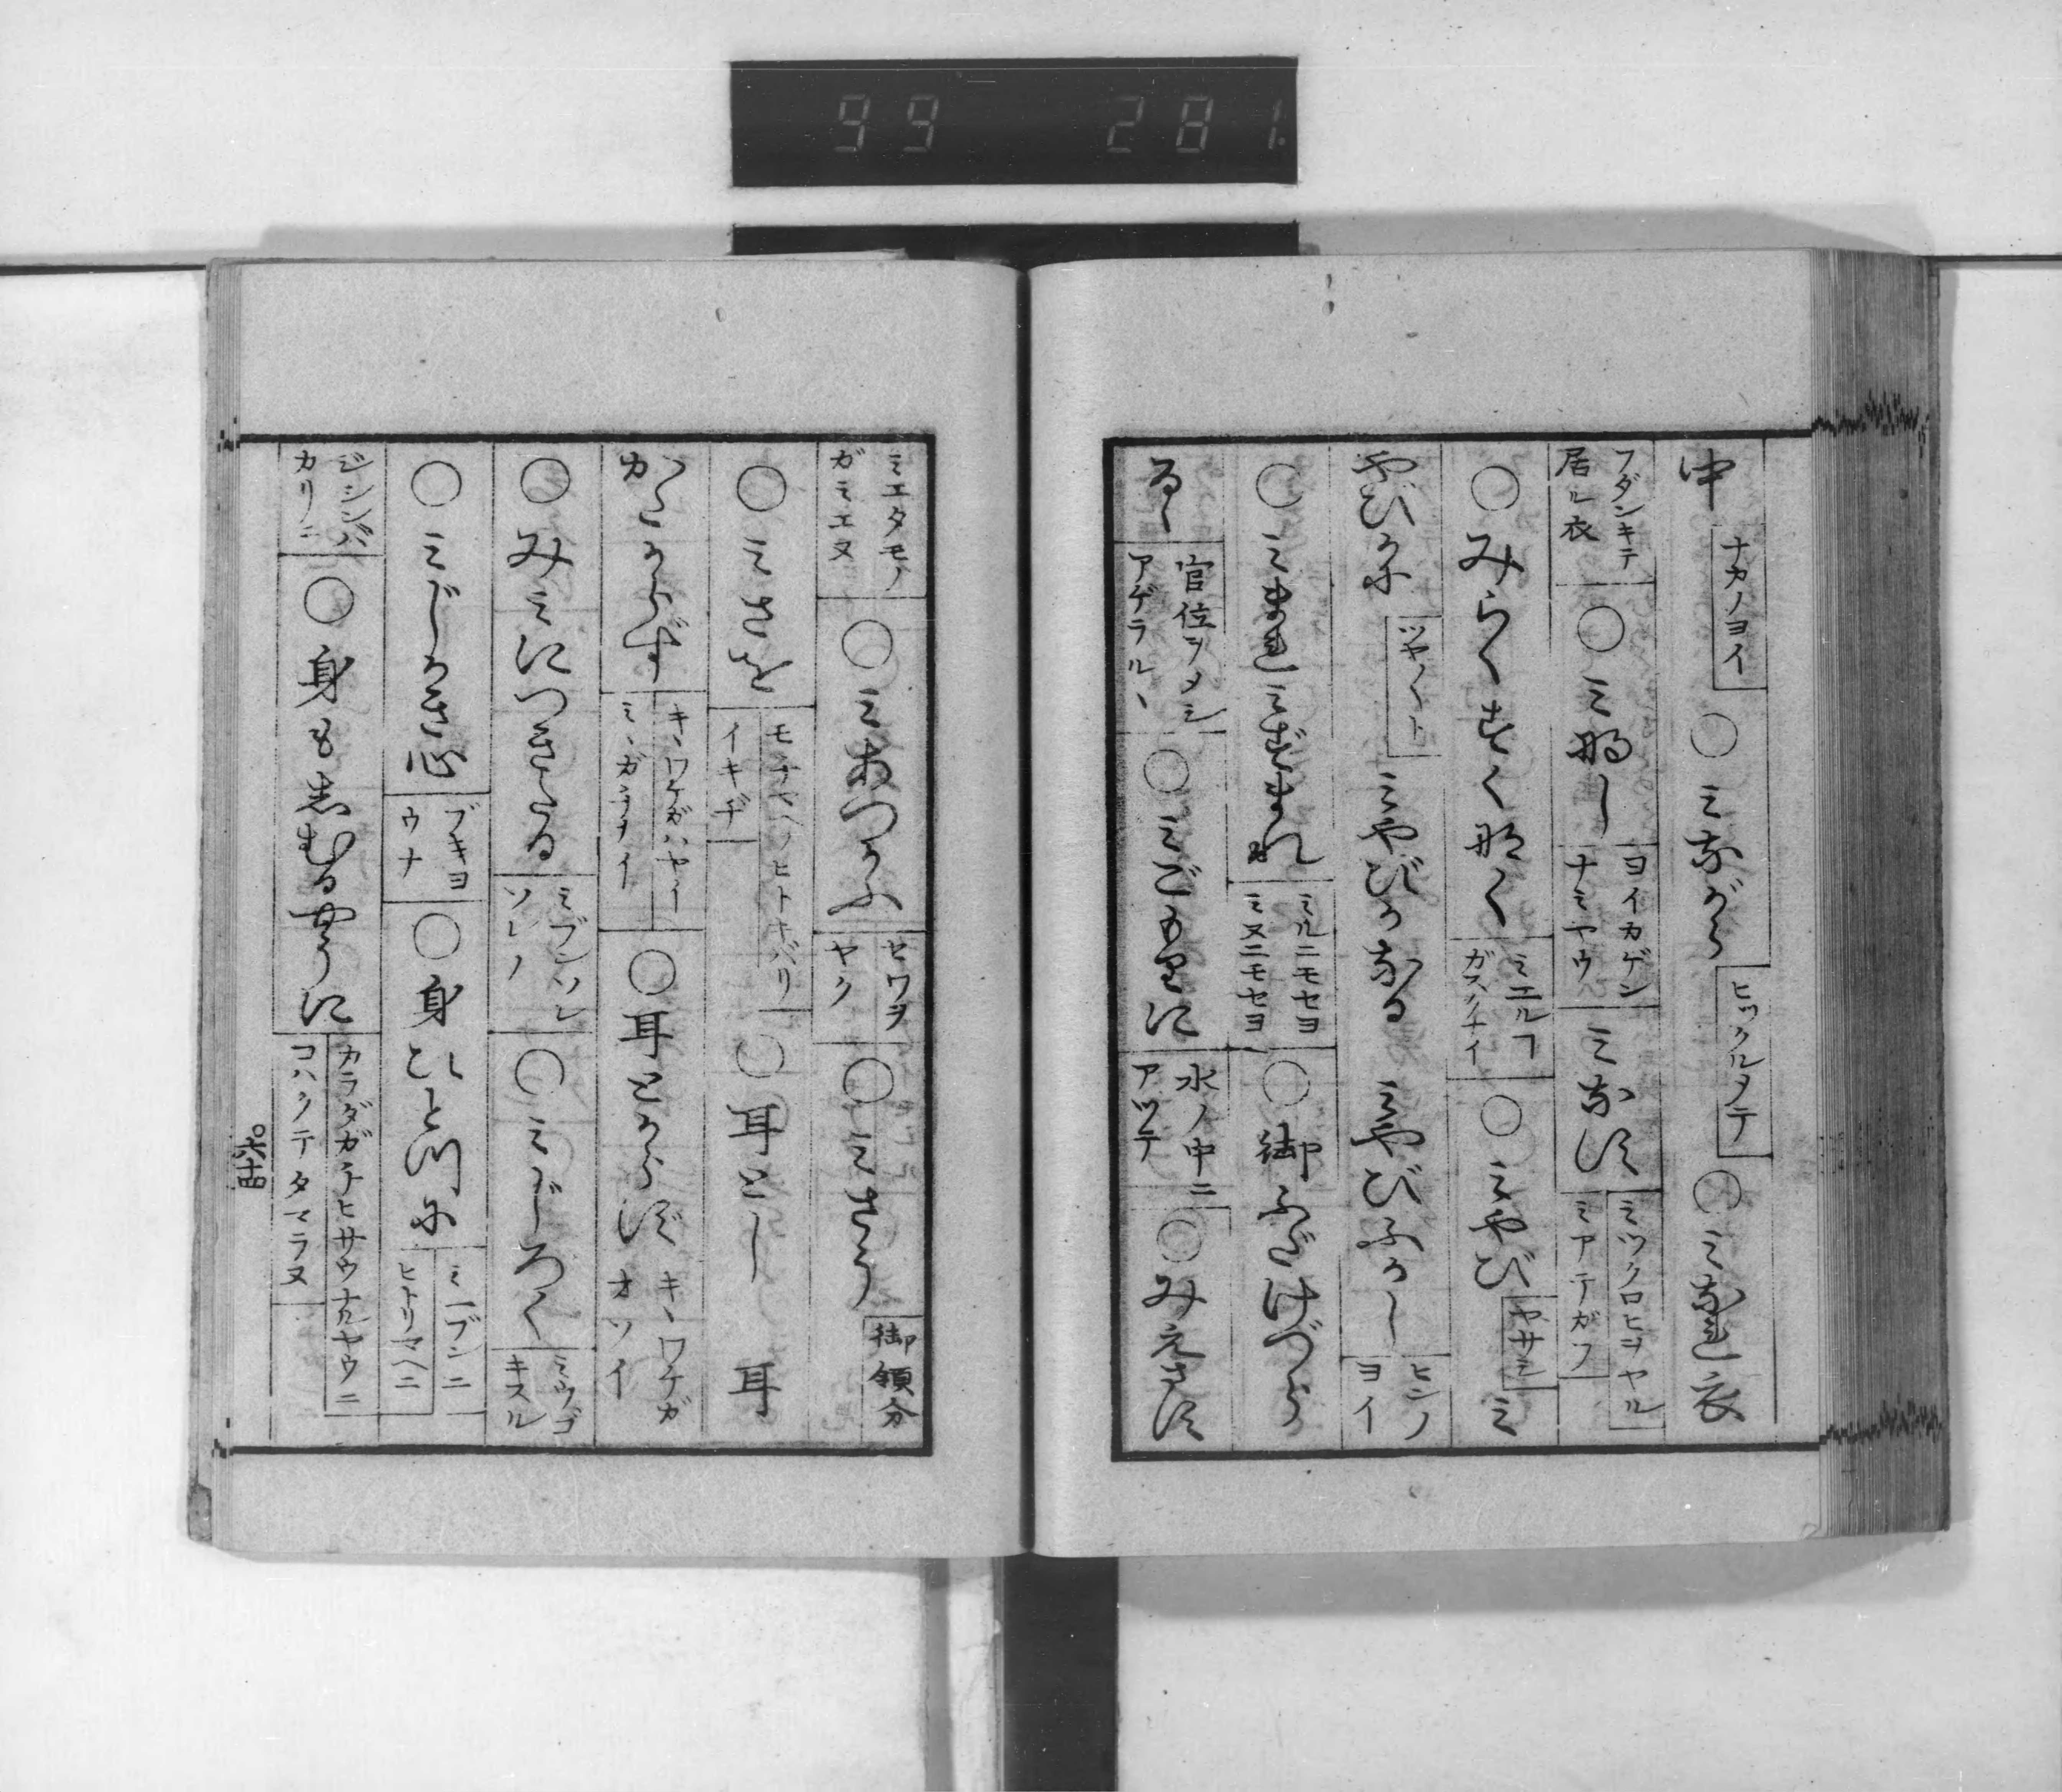 99 281.
中 ナカノヨイ ○ミながら ヒックルメテ ○ミなれ衣
フダンキテ居ル衣 ○ミなし ヨイカゲンナミヤウ ミなす ミツクロヒヲヤル ミアテガフ
○みらくすくなく ミエルヿガスクナイ ○ミやび ヤサシ ミ
やびかに ツヤ〱ト ミやびかなる ミやびふかし ヒンノヨイ
○ミまれミずまれ ミルニモセヨミヌニモセヨ ○御ふだけづら
るゝ 官位ヲメシアゲラルヽ ○ミごもりに 水ノ中ニアツテ ○みえさす
ミエタモノガミエヌ ○ミあつかふ セワヲヤク ○ミさう 御領分
○ミさを イキヂ ○耳とし 耳
かしこからず キヽワケガハヤイ ○耳とからず キヽワケガオソイ
○みミにつきたる ミブンソレソレノ ○ミじろく ミウゴキスル
○ミじかき心 ブキヨウナ ○身ひとつに ミ一ブンニ ヒトリマヘニ
ジシンバカリニ ○身もしむるやうに カラダガチヒサウナルヤウニ コハクテタマラヌ
六十四